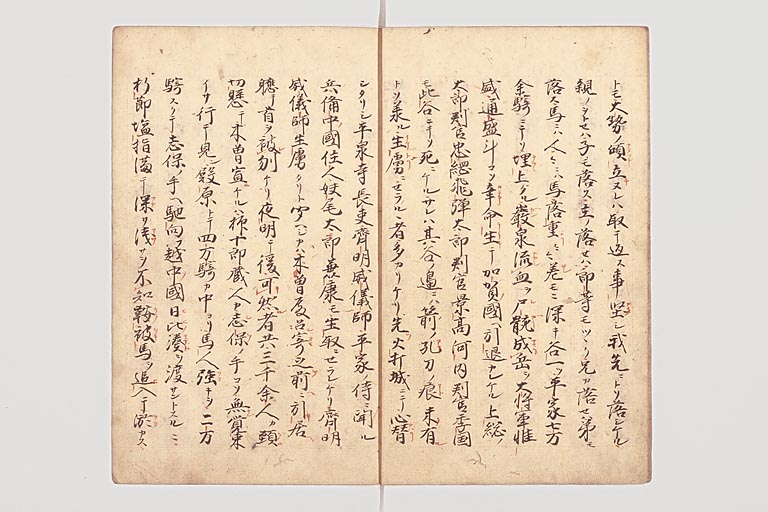 トモ大勢ノ傾立ヌレハ取テ返ス事堅シ我先ニトソ落シケル
親ノヲトセハ子モ落ス主ノ落セハ郎等モツヽク兄カ落セハ弟モ
落ス馬ニハ人人ニハ馬落重ネ巻モニ深キ谷一ツ平家七万
余騎ニテソ埋上タル巖泉流血ヲ尸骸成岳ヲ大将軍惟
盛通盛斗コソ幸命生テ加賀國ヘ引退セケル上総ノ
太郎判官忠綱飛弾太郎判官景高河内判官季國
モ此谷ニテソ死ニケルサレハ其谷ノ邊ニハ箭ノ孔刀ノ痕未有
トソ承ル生虜ニセラルヽ者多カリケリ先火打城ニテ心替
シタリシ平泉寺長吏齊明威儀師平家ノ侍ニ聞ル
兵備中國住人妹尾太郎兼康モ生取ニセラレケリ齊明
威儀師生虜タリト聞ヘシカハ木曽殿召寄テ前ニ引居
聴テ首ヲ被刎ケリ夜明テ後可然者共三千余人カ頸
切懸テ木曽宣ケルハ十郎蔵人ノ志保ノ手コソ無覚束
イサ行テ見ン殿原トテ四万騎カ中ヨリ馬人強キヲ二万
騎スクリテ志保ノ手ヘ馳向フ越中國日比湊ヲ渡サントスルニ
折節塩指満テ深サ浅サヲ不知鞍被馬ヲ追入テ